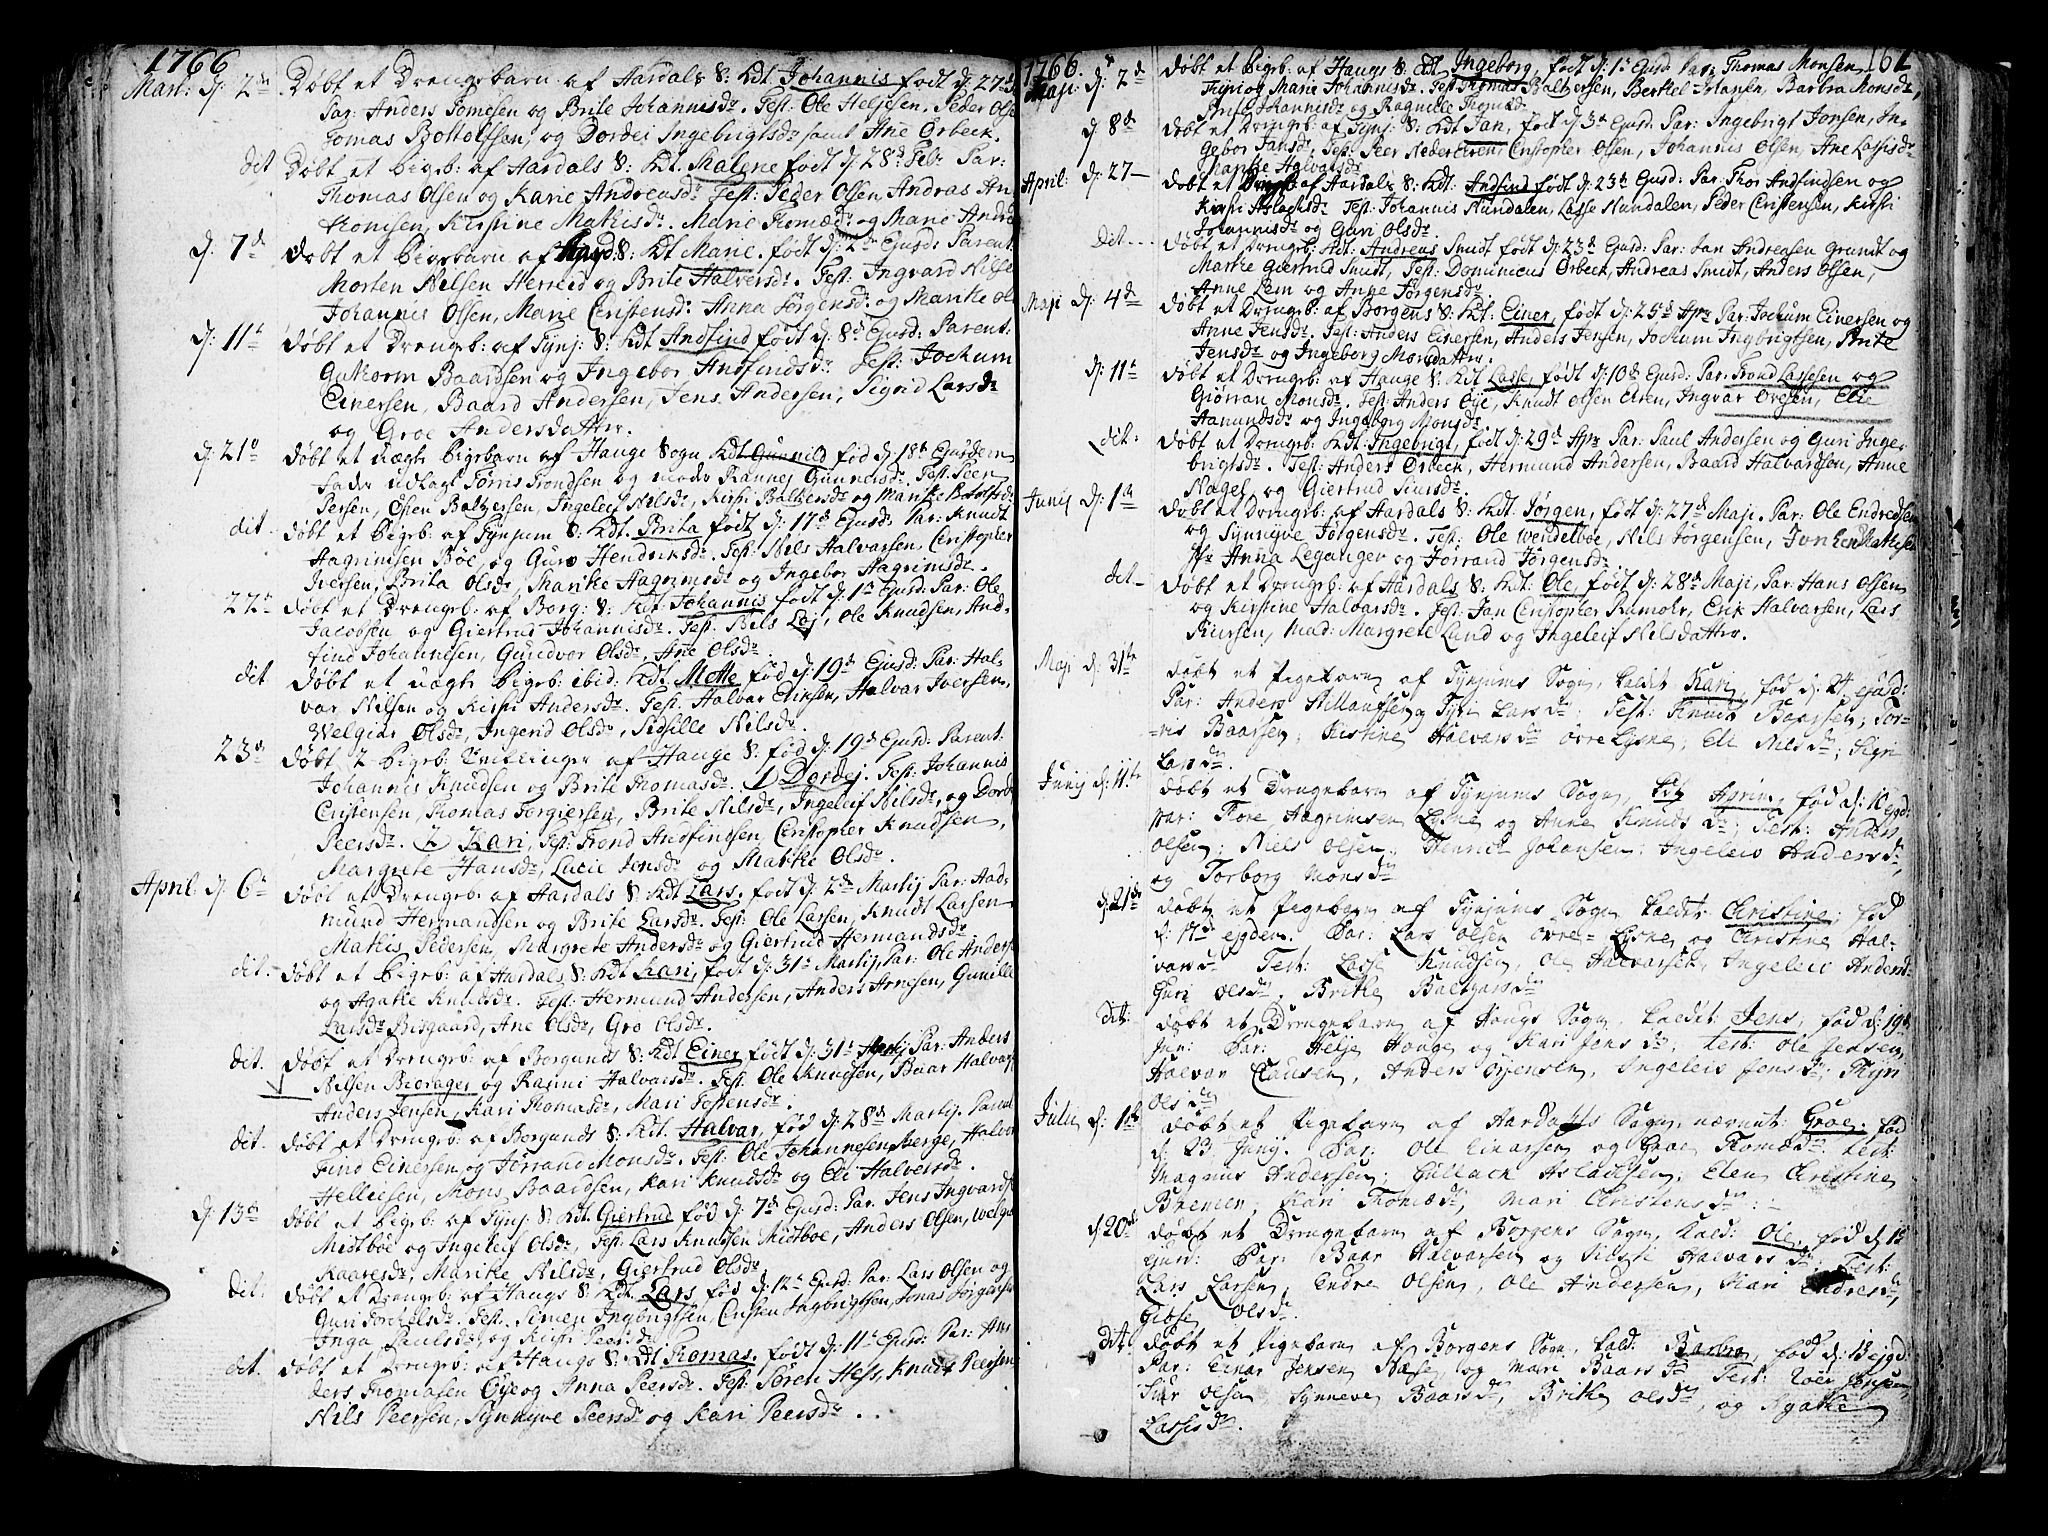 1766
Mart: d: 2den Døbt et Drengebarn af Aardals S: kdt Johannis født d: 27de
Par: Anders Tomesen og Brite Johannisdr. Test: Ole Helgesen, Peder Olse
Tomas Bottolfsen, og Dordei Ingebrigtsdr samt Ane Orbeck.
dit Døbt et Pigeb: af Aardals S: kdt. Malene født d: 28de Feb: Par:
Thomas Olsen og Karie Andreasdr. Test: Peder Olsen, Andras An
tonisen, Kirstine Mathisdr. Marie Thomædr og Marie Andre
d: 7de døbt et Pigebarn af S: kdt Marie. født d: Ejusd: Parent:
Morten Nilsen Herreid og Brite Halversdr. Test: Ingvard Nilsen
Johannis Olsen, Marie Christensdr. Anna Jørgensdr og Marike Ol
d: 11te døbt et Drengeb: af Tynj: S: kdt Andfind født d: 8de Ejusd: Parent:
Guttorm Baardsen og Ingebor Andfindsdr. Test: Jochum
Einersen, Baard Andersen, Jens Andersen, Sigrid Larsdr
og Groe Andersdatter.
d: 21de døbt et uægte Pigebarn af Hauge Sogn kdt Gunnild fød d: 18de Ejusdem
fader udlagt Torris Trondsen og moder Rannei Gunnersdr. Test: Peer
Persen, Esten Baltzersen, Ingeleif Nilsdr, Kirsti Baltzersdr og Marike Botolfsdr.
dit døbt et Pigeb: af Tynjum S: kdt. Brita født d: 17de Ejusd: Par: Knudt
Aagrimsen Bøe, og Guro Hendriksdr. Test: Nils Halvarsen, Christopher
Iversen, Brita Olsdr, Marike Aagrimsdr og Ingebor Aagrimsdr.
22de døbt et Drengeb: af Borg: S: kdt. Johannis født d: 1te Ejusd: Par: Ole
Jacobsen og Giertrud Johannisdr. Test: Nils Loj, Ole Knudsen, And-
find Johannesen, Gundvor Olsdr, Ane Olsdr.
dit døbt et uægte Pigeb: ibid. kdt. Mette fød d: 19de Ejusd: Par: Hal-
var Nilsen og Kirsti Andersdr. Test: Halvar Erichsen, Halvar Iversen,
Welgier Olsdr, Ingerid Olsdr, Sidsille Nilsdr.
23de døbt 2 Pigeb: Tvillinger af Hauge S: fød d: 19de Ejusd: Parent:
Johannis Knudsen og Brite Thomasdr. 1) Dordej. Test: Johannis
Cristensen, Thomas Torgiersen, Brite Nilsdr, Ingeleif Nilsdr, og Dord
Peersdr. 2) Kari, Test: Trond Andfindsen, Christopher Knudsen,
Margrete Hansdr, Lucie Jensdr og Marike Olsdr.
April d: 6te døbt et Drengeb: af Aardals S: kdt Lars, født d: 2de Martij Par: Aad-
mund Hermandsen og Brite Larsdr. Test: Ole Larsen, Knudt Larsen
Mathis Pedersen, Margrete Andersdr og Giertrud Hermandsdr.
dit - døbt et Pigeb: af Aardals S: kdt Kari, født d: 31te Martij, Par: Ole Anders
og Agathe Knudsdr. Test: Hermund Andersen, Anders Arnesen, Gunille
Larsdr Bisgaard, Ane Olsdr, Gro Olsdr.
dit. døbt et Drengeb: af Borgunds S: kdt Einer født d: 31te Martij Par: Anders
Nilsen Biørager og Ranni Halvarsdr. Test: Ole Knudsen, Peiar Halvars
Anders Jensen, Kari Thomasdr, Mari Tostensdr.
dit. døbt et Drengeb: af Borgunds S: kdt. Halvar, fød d: 28de Martij. Parent
find Einersen, og Torrand Monsdr. Test: Ole Johannesen Berge, Halvor
Helliesen, Mons Baardsen, Kari Knudsdr og Eli Halversdr.
d: 13de døbt et Pigeb: af Tynj: S: kdt. Giertrud fød d: 7de Ejusd: Par: Jens Ingvards
Mestbøe og Ingeleif Olsdr, Test: Lars Knudsen Mestboe, Anders Olsen, Welgi
Kaaresdr, Marike Nilsdr, Giertrud Olsdr.
dit. døbt et Drengeb: af Haugs S: kdt. Lars fød d: 12te Ejusd: Par: Lars Olsen og
Guri Torkelsdr. Test. Simen Ingbrigtsen, Cristen Ingbrigtsen, Jonas Jørgens
Inga Paulsdr, og Kirsti Peersdr.
dit. døbt et Drengeb: af Haugs S: kdt Thomas, født d: 11te Ejusd: Par: An
ders Thomasen Øye og Anna Peersdr. Test: Søren Hess, Knudt Peersen
Nils Peersen, Synnyve Peersdr og Kari Peersdr.
1766.
161
Maji d: 2de døbt et Pigeb: af Haugs S: kdt Ingeborg, født d: 1te Ejusd: Par: Thomas Monsen
Marie Johannisdr. Test: Thomas Baltzersen, Berthel Hansen, Barbra Monsdr,
Brite Johannisdr og Ragnille Thomædr.
d: 8de døbt et Drengeb: af Tynj: S: kdt Jan, født d: 3de Ejusd. Par: Ingebrigt Jonsen, In-
gebor Jansdr, Test: Peer NederEren, Christopher Olsen, Johannis Olsen, Ane Lassisdr
Marike Halvarsdr.
April: d: 27 - døbt et af Aardals S: kdt: Andfind født d: 23de Ejusd: Par: Thor Andfindsen og
Kirsti Aslachsdr Test: Johannis Nundalen, Lasse Nundalen, Peder Cristensen, Kirsti
Johannisdr og Guri Olsdr.
dit - døbt et Drengeb: kdt: Andreas Smidt født d: 23de Ejusd: Par: Jan Andreasen Grundt og
Marike Giertrud Smidt, Test: Dominicus Orbeck, Andreas Smidt, Anders Olsen,
Anne Lem og Ange Jørgensdr.
Maji d: 4de døbt et Drengeb: af Borgens S: kdt: Einer, født d: 25de Apr: Par: Jochum Einersen og
Anne Jensdr. Test: Anders Einersen, Anders Jensen, Jochum Ingbrigtsen, Brite
Jensdr og Ingeborg Monsdatter.
d: 11te døbt et Drengeb: af Hauge S: kdt Lasse, født d: 10de Ejusd: Par: Trond Lassesen og
Giøran Monsdr. Test: Anders Øye, Knudt Olsen Eren, Ingvar Ovesen, Eli
Aamundsdr og Ingeborg Monsdr.
dit: døbt et Drengeb: kdt: Ingebrigt, født d: 29de Apr: Par: Paul Andersen og Guri Inge-
brigtsdr. Test: Anders Orbeck, Hermund Andersen, Baard Halvardsen, Anne
Nagel og Giertrud Siursdr.
Junij d: 1te døbt et Drengeb: af Aardals S: kdt: Jørgen, født d: 27de Maji. Par: Ole Endredsen
og Synnyve Jørgensdr. Test: Ole Wendelboe, Nils Jørgensen, Mathise
Jfr Anna Leganger og Torrand Jørgensdr.
det - døbt et Drengeb: af Aardals S: kdt: Ole, født d: 28de Maji, Par: Hans Olsen
og Kirstine Halvarsdr. Test: Jan Christopher Rumohr, Erik Halvarsen, Lars
Siursen, Mad: Margrete Lund og Ingeleif Nilsdatter.
Maji d: 31te døbt et Pigebarn af Tynjums Sogn, kaldet Kari, fød d: 24 ejusd:
Par: Anders og Tyri Larsdr: Test: Knud Baarsen; Tor-
nis Baarsen; Kistine Halvarsdr øvre Lysne; Eli Nilsdr; Sigri
Larsdr.
Junij d: 11te døbt et Drengebarn af Tynjums Sogn, kdt Agrim, fød d: 10 ejgd:
par: Tore Aagrimsen Lysne og Anne Knudsdr; Test: Anders
Olsen; Niels Olsen; Johansen; Ingeleiv Andersdr,
og Torborg Monsdr
d: 21de døbt et Pigebarn af Tynjums Sogn kaldet Christine; fød
d: 17de ejgdem. Par: Lars Olsen øvre-Lysne og Christine Hal-
varsdr Test: Lasse Knudsen, Ole Halvarsen, Ingeleiv Andersdr.
Guri Olsdr, Brithe Baltzarsdr
dit: døbt et Drengebarn af Haugs Sogn, kaldet Jens, fød d: 19de
Jun: Par: Helje Hauge og Kari Jensdr, test: Ole Jensen,
Halvar Clausen, Anders Jensdr, Ingeleiv Jensdr; Thyri
Olsdr
Julii d: 1te døbt et Pigebarn af Aardals Sogn, nævnt: Groe. fød
d: 23 Junij. Par: Ole Einarsen og Groe Thomædr. Test:
Magnus Andersen; Gullack Aslachsen; Elen Christine
Bremer, Kari Thomædr, Mari Christensdr: -
d 20de døbt et Drengebarn af Borgens Sogn, kald: Ole, fød d 12
Ejusd: Par: Baar Halvarsen og Kirsti Halvarsdr; Test:
Lars Larsen, Endre Olsen, Ole Andersen, Kari Endresdr,
Gibse Olsdr.
dit. døbt et Pigebarn af Borgens Sogn, kald: Barbro, fød d: 13 ejgd:
Par: Einar Jensen Næse, og Mari Baarsdr Test: Joen Jensen,
Siur Olsen Synneve Baarsdr, Brithe Olsdr, og Agathe
Lassisdr.